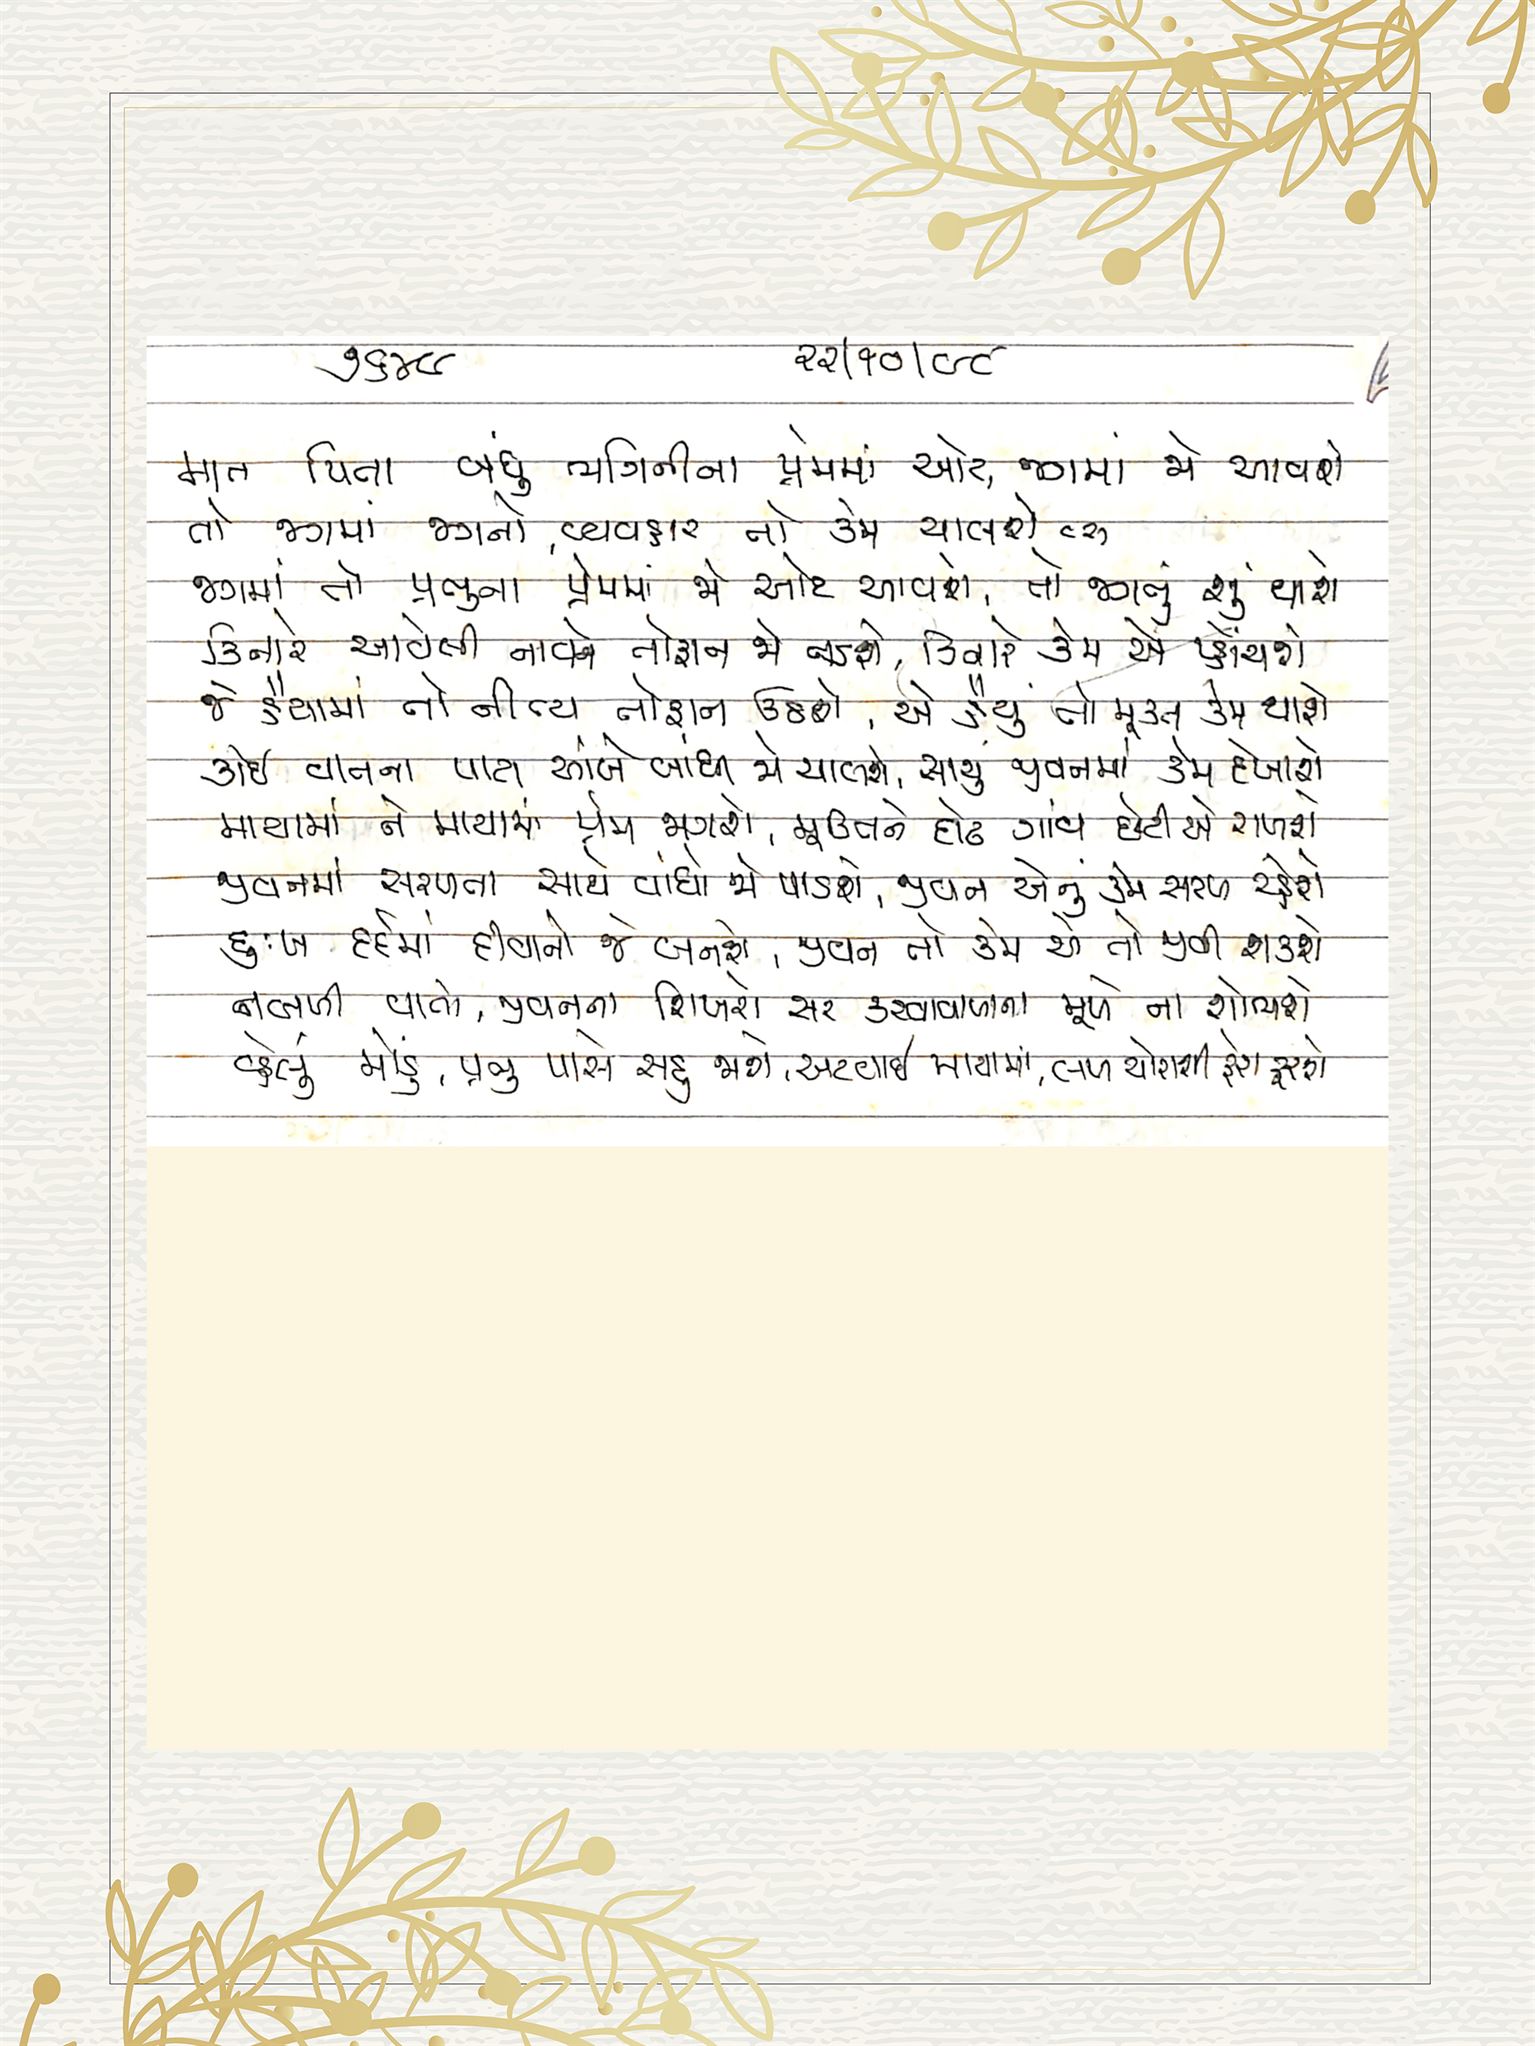 ૭૬૪૮ ૨૨/૧૦/૯૮
માત પિતા બંધુ ભગિનીના પ્રેમમાં ઓટ, જગમાં જો આવશે
તો જગમાં જગનો, વ્યવહાર તો કેમ ચાલશે
જગમાં તો પ્રભુના પ્રેમમાં જો ઓટ આવશે, તો જગનું શું થાશે
કિનારે આવેલી નાવને તોફાન જો નડશે, કિનારે કેમ એ પ્હોંચશે
જે હૈયામાં તો નીત્ય તોફાન ઉઠશે, એ હૈયું તો મૂક્ત કેમ થાશે
કોઈ વાતના પાટા આંખે બાંધી જો ચાલશે, સાચું જીવનમાં કેમ દેખાશે
માયામાં ને માયામાં પ્રેમ જાગશે, મૂક્તિને દોઢ ગાંવ છેટી એ રાખશે
જીવનમાં સરળતા સાથે વાંધો જો પાડશે, જીવન એનું કેમ સરળ રહેશે
દુઃખ દર્દમાં દીવાનો જે બનશે, જીવન તો કેમ એ તો જીવી શકશે
નબળી વાતો, જીવનના શિખરો સર કરવાવાળાના મૂખે ના શોભશે
વ્હેલું મોડું, પ્રભુ પાસે સહુ જાશે, અટવાઈ માયામાં, લખ ચોરાશી ફેરા ફરશે